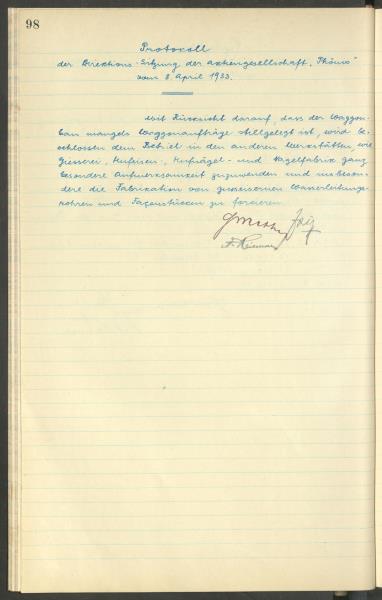 98
Protokoll
der Direktions-Sitzung der Aktiengesellschaft „Phönix“
vom 8. April 1933.
Mit Rücksicht darauf, dass der Waggon-
bau mangels Waggonaufträge stillgelegt ist, wird be-
schlossen dem Betrieb in den anderen Werkstätten, wie
Giesserei, Hufeisen-, Hufnägel- und Nagelfabrik ganz
besondere Aufmerksamkeit zuzuwenden und insbeson-
dere die Fabrikation von gusseisernen Wasserleitungs-
rohren und Façonstücken zu forcieren.